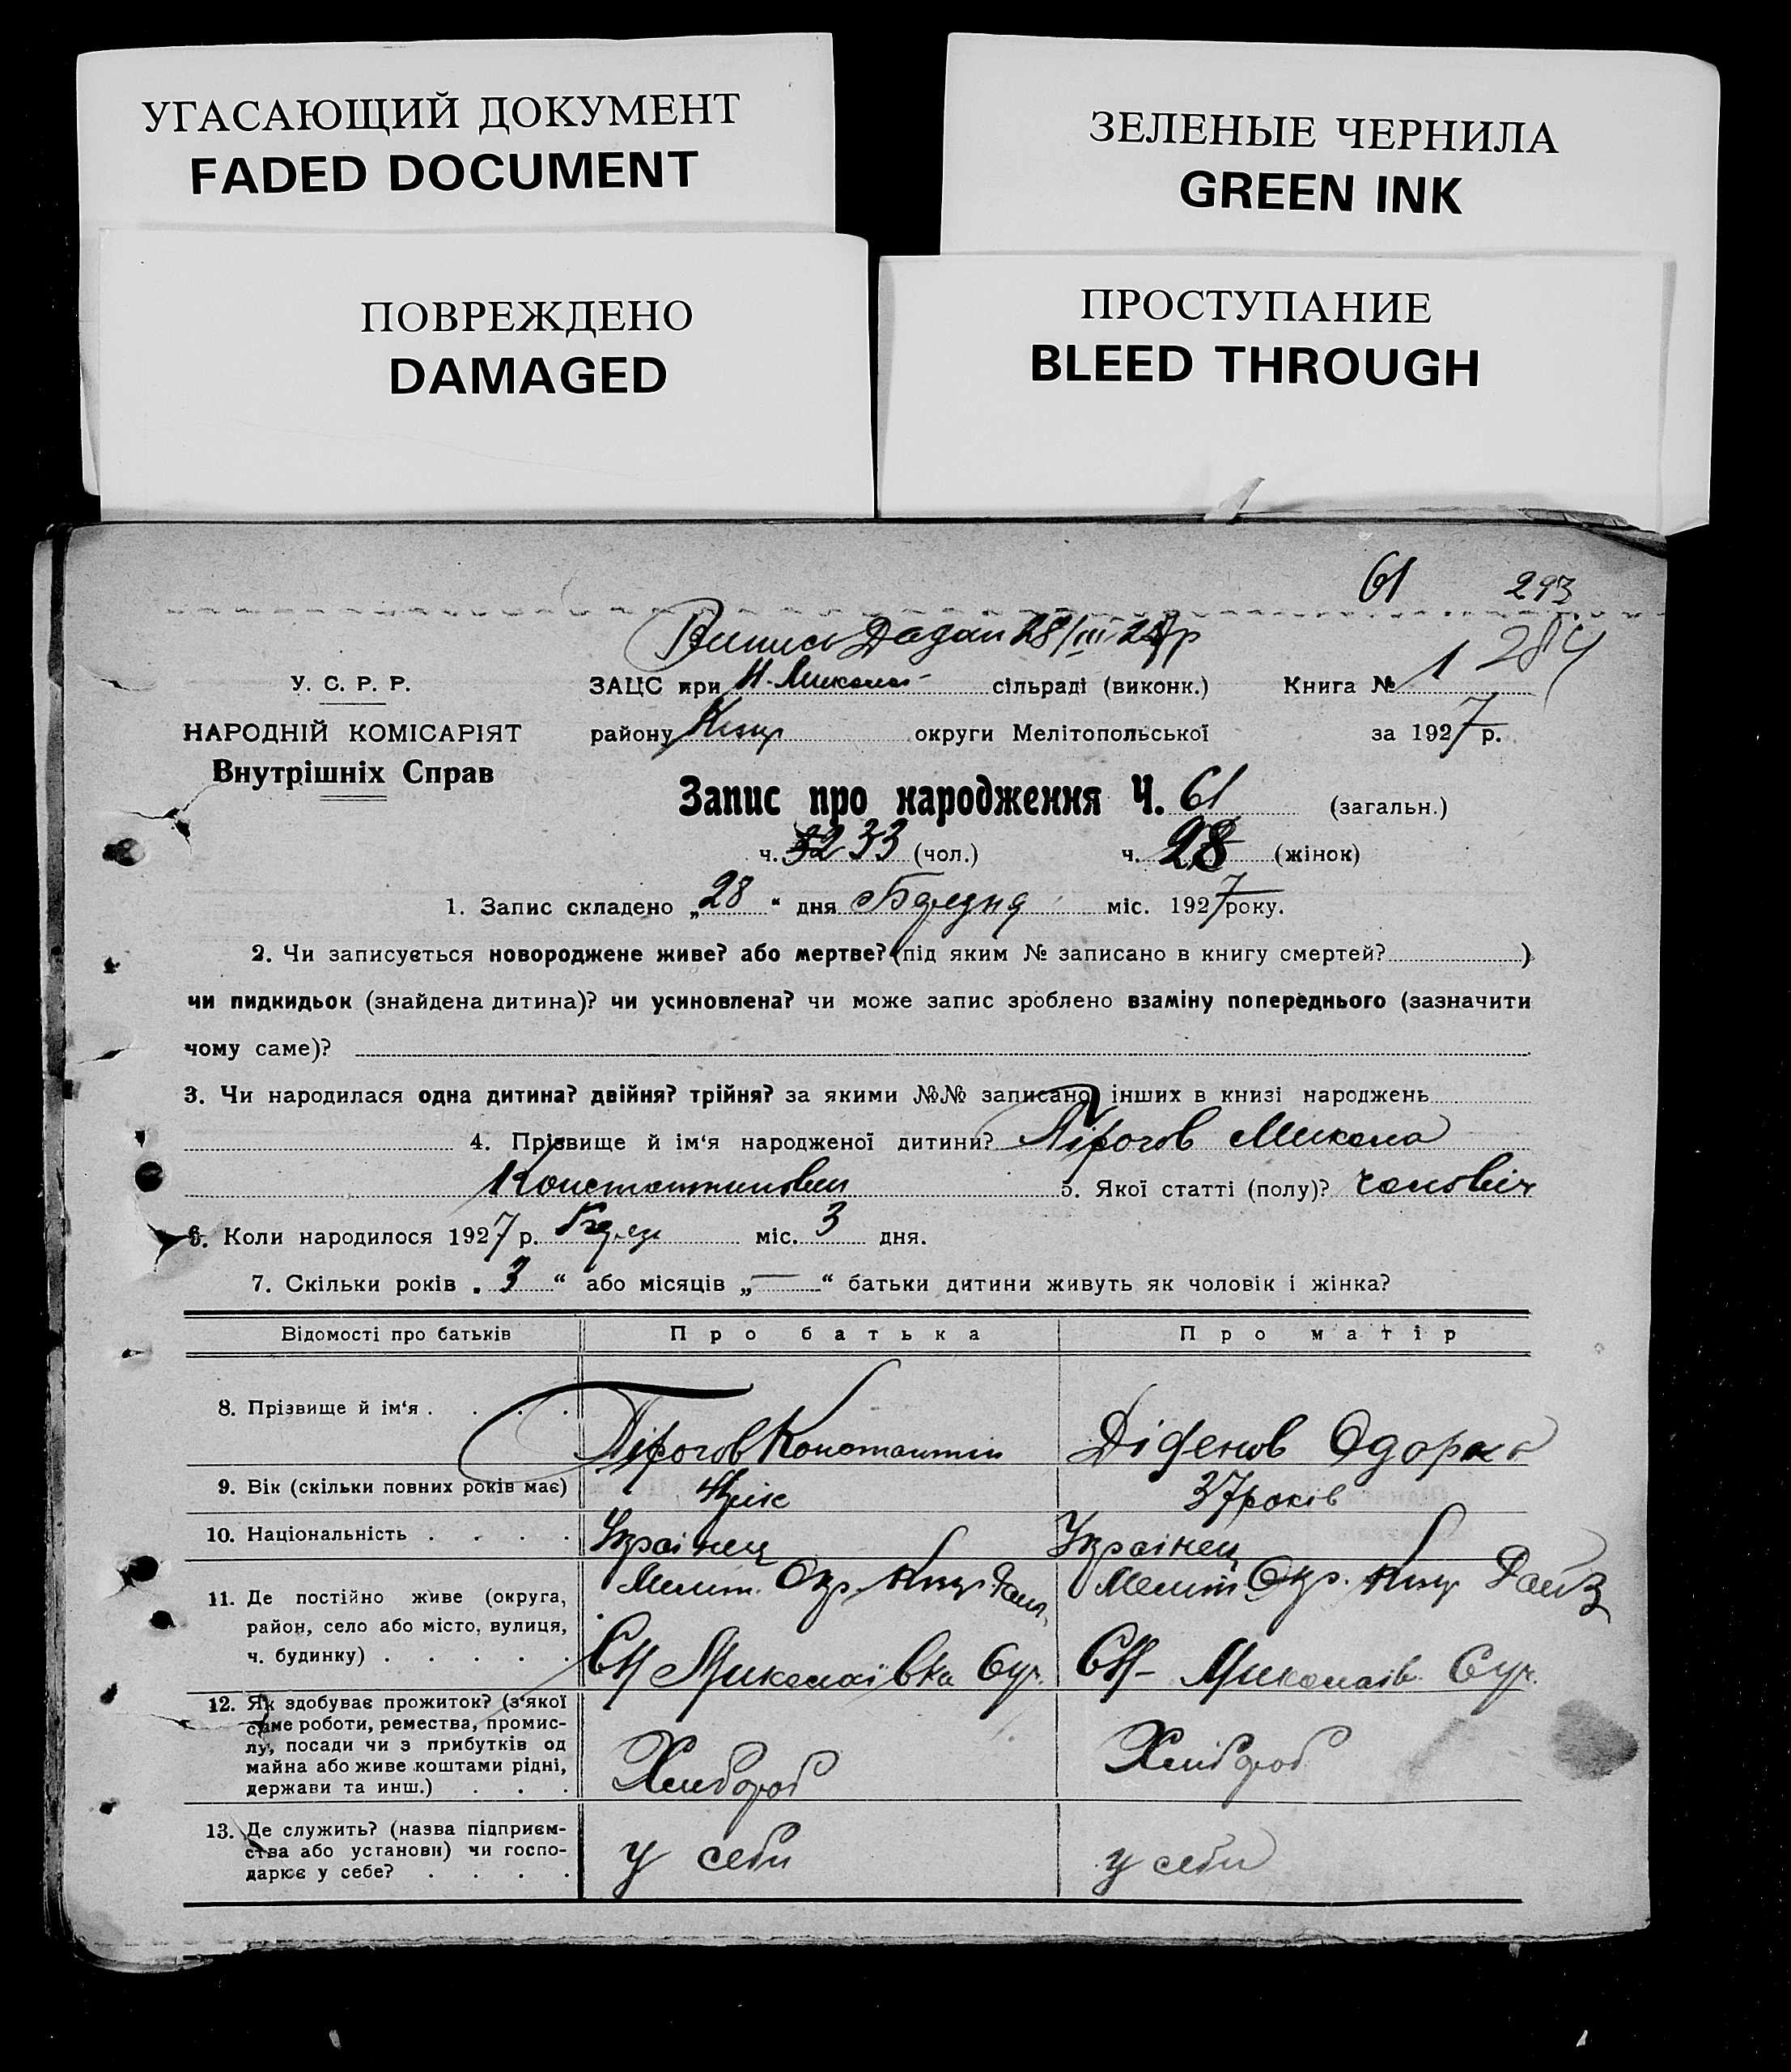 УГАСАЮЩИЙ ДОКУМЕНТ
FADED DOCUMENT
ЗЕЛЕНЫЕ ЧЕРНИЛА
GREEN INK
ПОВРЕЖДЕНО
DAMAGED
ПРОСТУПАНИЕ
BLEED THROUGH
61 293
Випись 28/III
1 284
У. С. Р. Р. ЗАЦС при Н. сільраді (виконк.) Книга № 
НАРОДНІЙ КОМІСАРІЯТ району округи Мелітопольської за 1927 р.
Внутрішніх Справ
Запис про народження Ч. 61 (загальн.)
ч. 32 33 (чол.) ч. 28 (жінок)
1. Запис складено „28“ дня міс. 1927 року.
2. Чи записується новороджене живе? або мертве? (під яким № записано в книгу смертей? )
чи пидкидьок (знайдена дитина)? чи усиновлена? чи може запис зроблено взаміну попереднього (зазначити
чому саме)?
3. Чи народилася одна дитина? двійня? трійня? за якими №№ записано інших в книзі народжень
4. Прізвище й ім‘я народженої дитини? Пірогов Микола
Константинович 5. Якої статті (полу)? чоловіч
6. Коли народилося 1927 р. міс. 3 дня.
7. Скільки років „3“ або місяців „—“ батьки дитини живуть як чоловік і жінка?
Відомості про батьків Про батька Про матір
8. Прізвище й ім‘я . . . . Пірогов Константин
9. Вік (скільки повних років має) 37 років
10. Національність . . . . Українец Українец
11. Де постійно живе (округа, Меліт. Окр. Меліт Окр.
район, село або місто, вулиця,
ч. будинку) . . . . . СН Миколаівка СН- Миколаів
12. Як здобуває прожиток? (з‘якої
саме роботи, ремества, промис-
лу, посади чи з прибутків од
майна або живе коштами рідні, Хлибороб Хлибороб
держави та инш.) . . .
13. Де служить? (назва підприєм-
ства або установи) чи госпо- у себи у себи
дарює у себе? . . . .